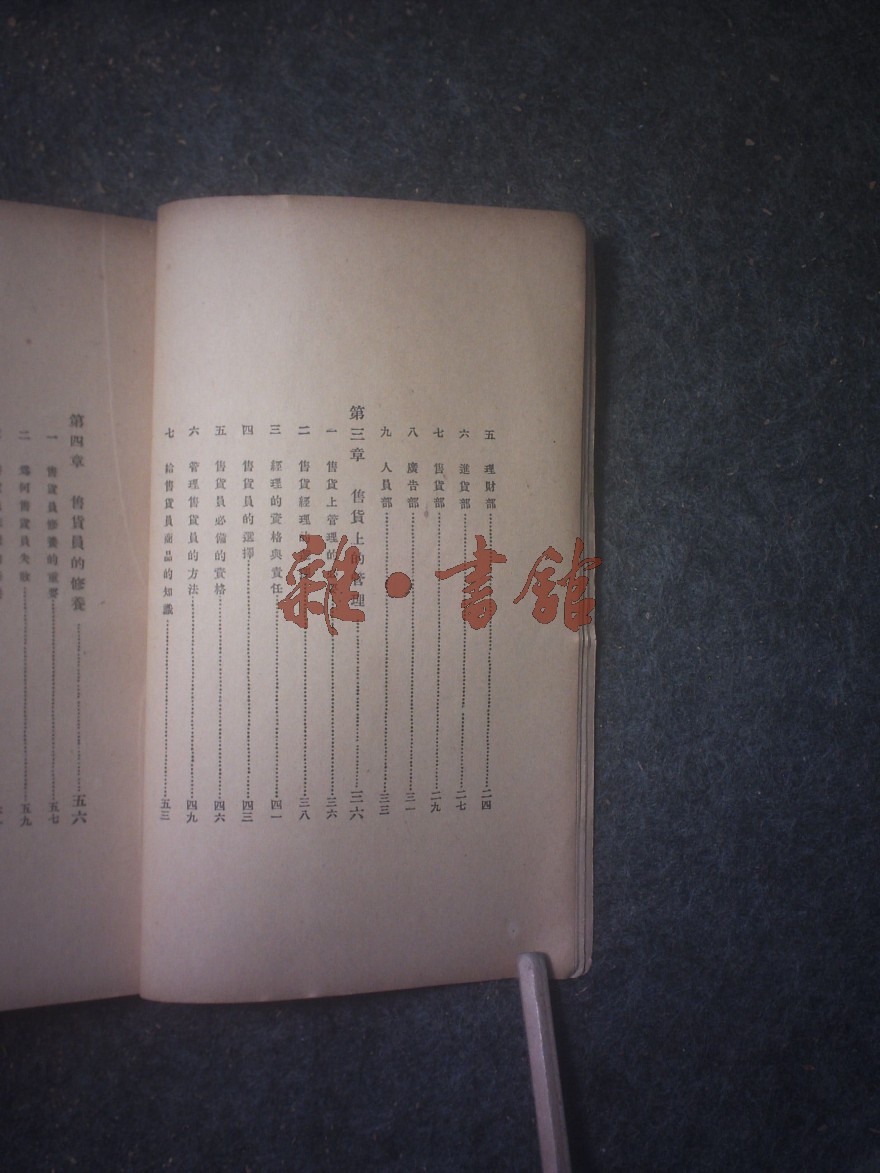 五 理財部……二四
六 進貨部……二七
七 售貨部……二九
八 廣告部……三一
九 人員部……三三
第三章 售貨上的管理……三六
一 售貨上管理的……三六
二 售貨經理的……三八
三 經理的資格與責任……四一
四 售貨員的選擇……四三
五 售貨員必備的資格……四六
六 管理售貨員的方法……四九
七 給售貨員商品的知識……五三
第四章 售貨員的修養……五六
一 售貨員修養的重要……五七
二 爲何售貨員失敗……五九
雜·書館